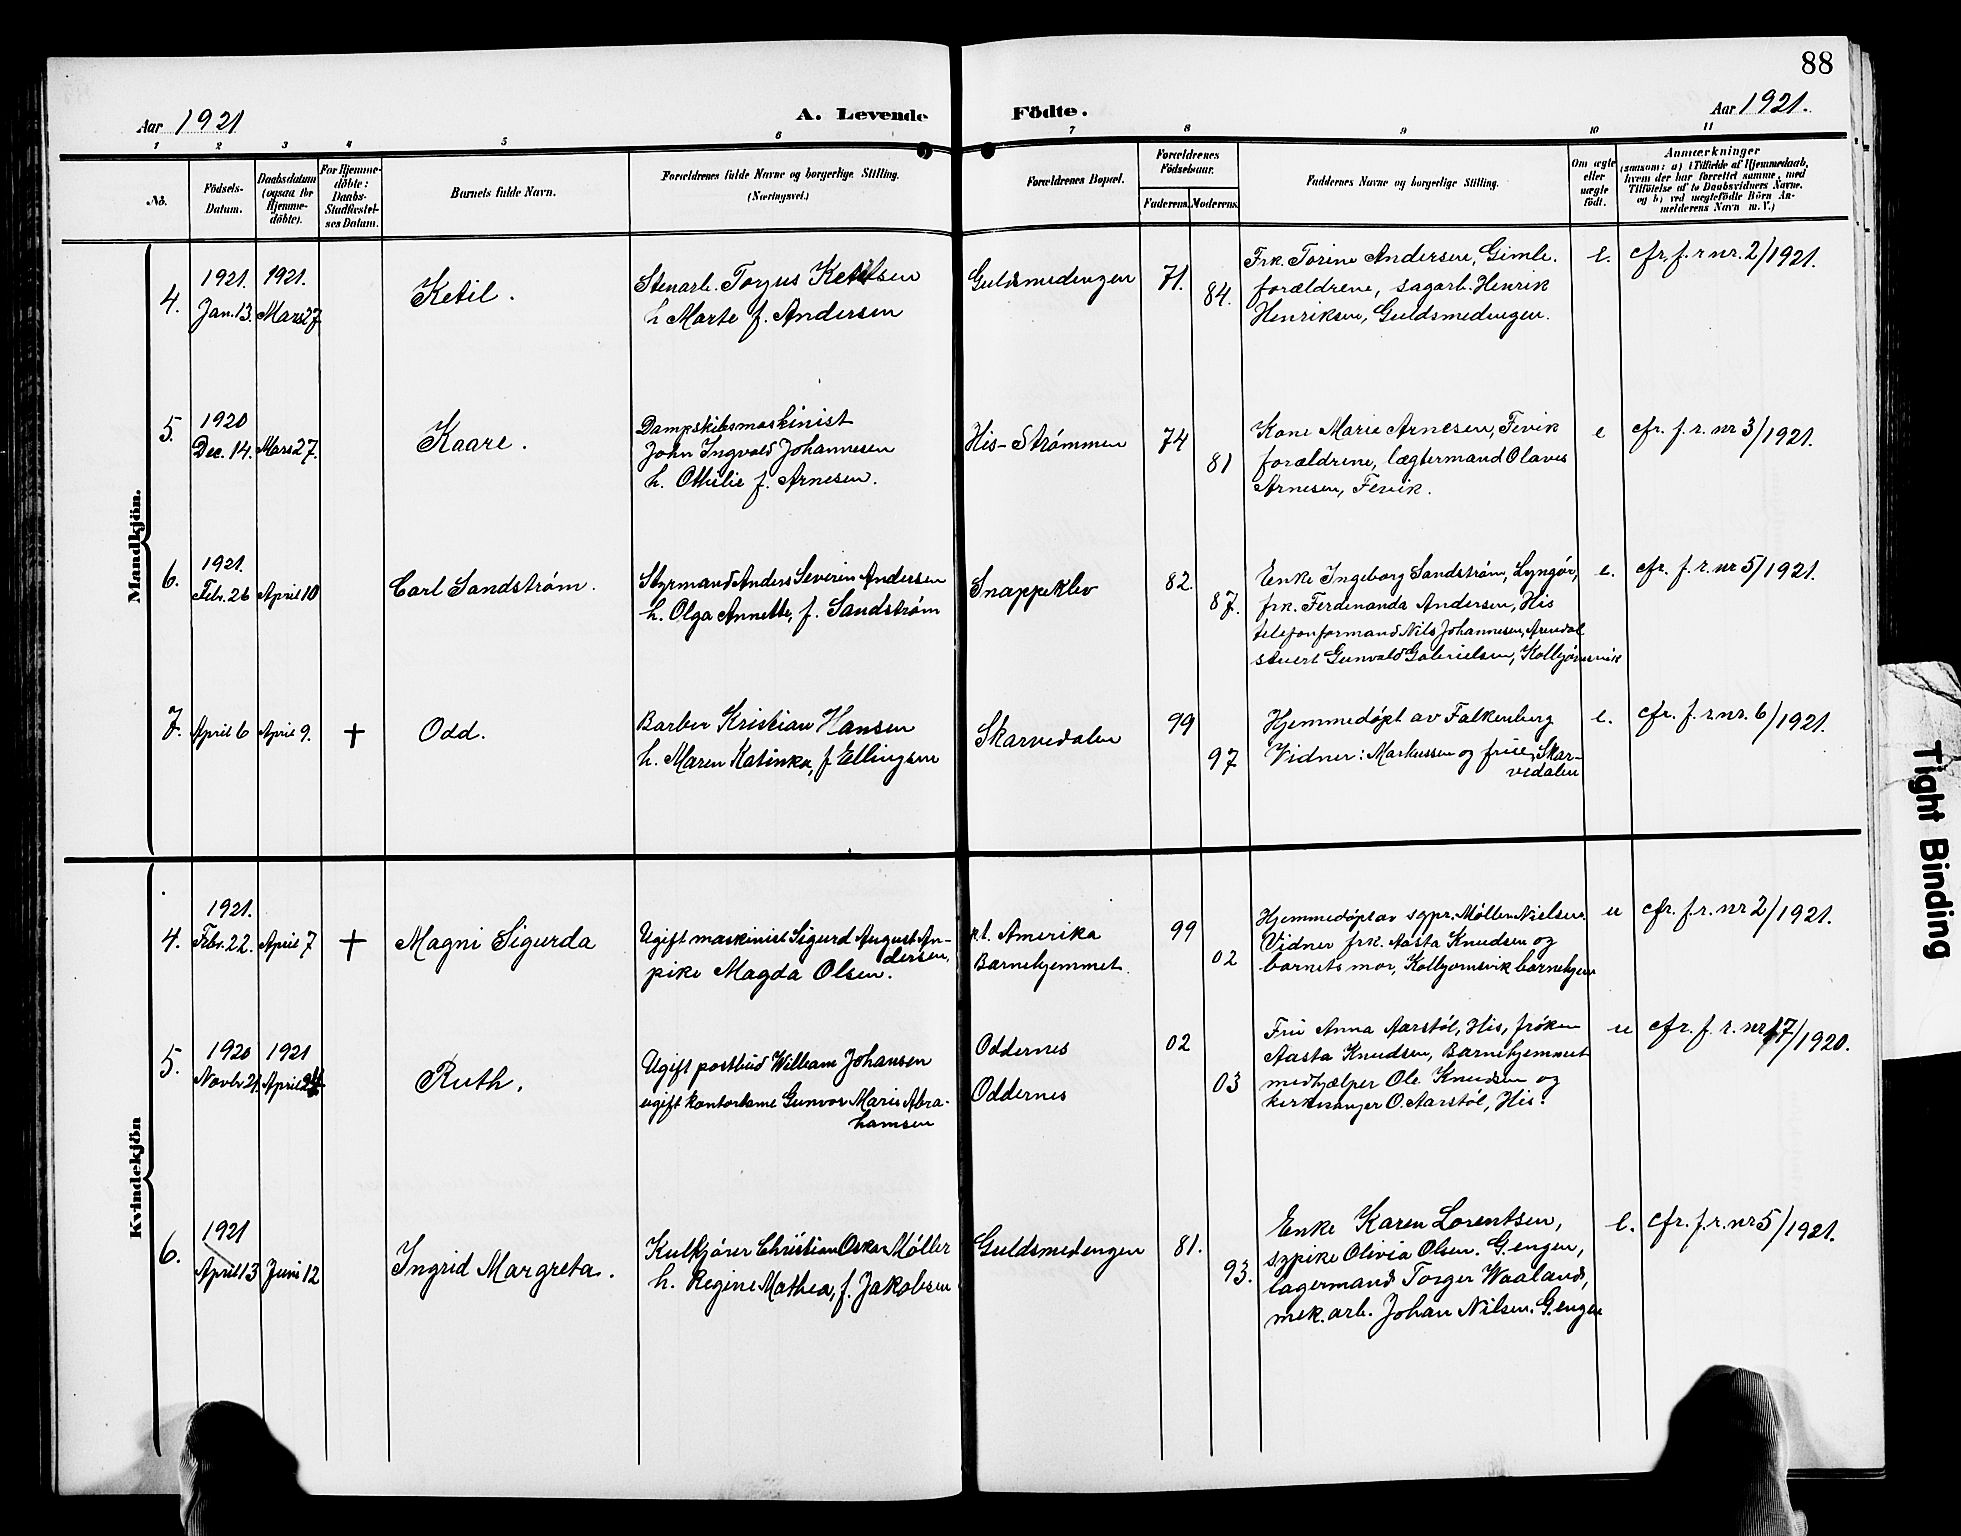 88
Aar 1921
A. Levende Födte.
Aar 1921.
1 2 3 4 5 6 7 8 9 10 11
No.
Födsels-Datum.
Daabsdatum (ogsaa for Hjemme-döbte).
For Hjemme-döbte: Daabs-Stadfæstel-ses Datum.
Barnets fulde Navn.
Forældrenes fulde Navne og borgerlige Stilling.
(Næringsvei.)
Forældrenes Bopæl.
Forældrenes Födselsaar.
Faderens. Moderens.
Faddernes Navne og borgerlige Stilling.
Om ægte eller uægte födt.
Anmærkninger
(saasom: a) i Tilfælde af Hjemmedaab, hvem der har forrettet samme, med Tilföielse af to Daabsvidners Navne, og b) ved uægtefödte Börn An-melderens Navn m. V.)
Mandkjön.
4.
1921 Jan. 13.
1921. Mars 27
Ketil.
Stenarb. Torjus Ketilsen
h. Marte f. Andersen
Guldsmedengen
71.
84.
Frk. Torine Andersen, Gimle.
forældrene, sagarb. Henrik
Henriksen, Guldsmedengen.
e.
cfr. f. r nr. 2/1921.
5.
1920 Dec. 14.
Mars 27.
Kaare.
Dampskibsmaskinist
John Ingvald Johannesen
h. Othilie f. Arnesen.
His-Strømmen
74
81
Kone Marie Arnesen, Fevik
forældrene, lægtermand Olaves
Arnesen, Fevik.
e
cfr. f. r. nr 3/1921.
6.
1921. Febr. 26
April 10
Carl Sandstrøm.
Styrmand Anders Severin Andersen
h. Olga Annette, f. Sandstrøm
Snappeklev
82.
87.
Enke Ingeborg Sandstrøm, Lyngør,
frk. Ferdinanda Andersen, His
telefonformand Nils Johannesen, Arendal
stuert Gunvald Gabrielsen, Kolbjørnsvik
e.
cfr. f. r. nr 5/1921.
7.
April 6
April 9.
+
Odd.
Barber Kristian Hansen
h. Maren Katinka, f Ellingsen
Skarvedalen
99
97
Hjemmedøpt av Falkenberg
Vidner: Markussen og frue, Skar-
vedalen
e.
cfr. f. r. nr. 6/1921.
Kvindekjön
4.
1921. Febr. 22.
April 7
+
Magni Sigurda
Ugift maskinist Sigurd August An-
dersen,
pike Magda Olsen.
p.t. Amerika
Barnehjemmet.
99
02
Hjemmedøpt av sgpr. Møller Nielsen.
Vidner frk. Aasta Knudsen og
barnets mor, Kolbjornsvik barnehjem
u
cfr. f. r. nr 2/1921.
5.
1920 Novbr 21.
1921 April 24
Ruth.
Ugift postbud William Johansen
ugift kontordame Gunvor Marie Abra-
hamsen
Oddernes
Oddernes
02
03
Fru Anna Aarstöl, His, frøken
Aasta Knudsen, Barnehjemmet
medhjælper Ole Knudsen og
kirkesanger O. Aarstöl, His.
u
cfr. f. r. nr 17/1920.
6.
1921 April 13
Juni 12
Ingrid Margreta.
Kulkjører Christian Oskar Møller
h. Regine Mathea, f. Jakobsen
Guldsmedengen
81.
93.
Enke Karen Lorentsen,
sypike Olivia Olsen. G.engen,
lagermand Torger Waaland,
mek. arb. Johan Nilsen. G.engen
e.
cfr. f. r. nr 5/1921.
Tight Binding